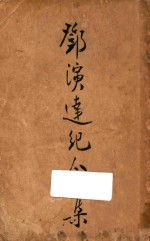 鄧演達紀集